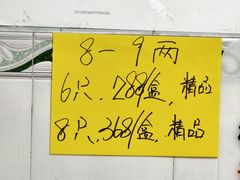 8-9两
6只、288/盒，精品
8只、368/盒，精品